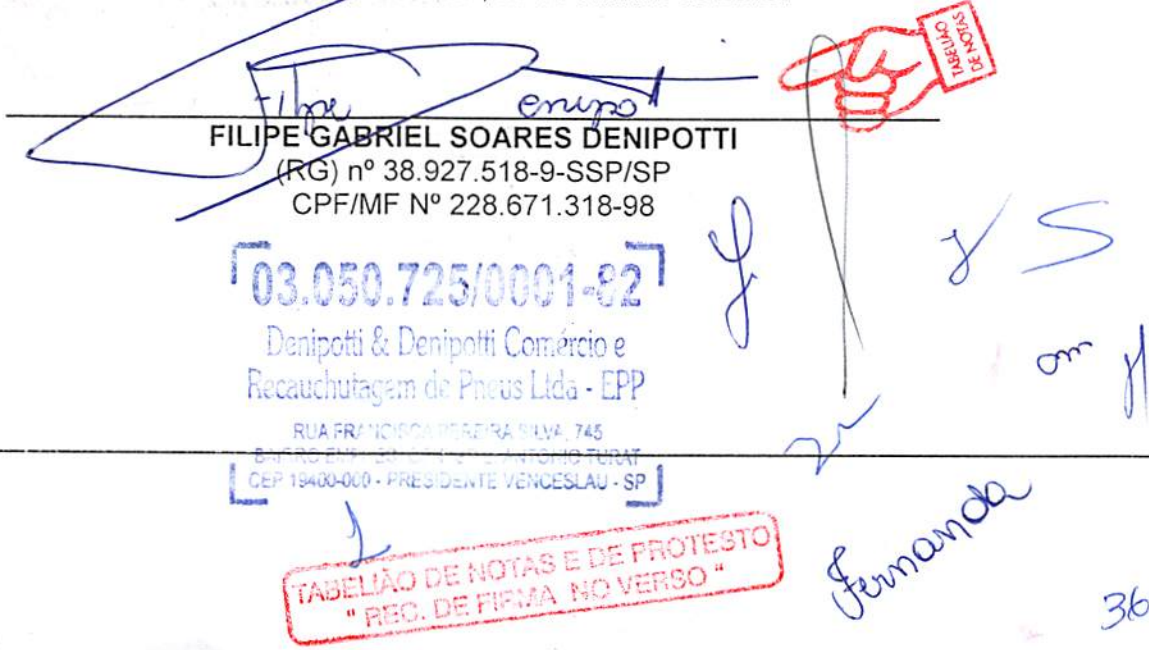 TABELIÃO
DE NOTAS
Filipe
FILIPE GABRIEL SOARES DENIPOTTI
(RG) nº 38.927.518-9-SSP/SP
CPF/MF Nº 228.671.318-98
03.050.725/0001-82
Denipotti & Denipotti Comércio e
Recauchutagem de Pneus Ltda - EPP
RUA FRANCISCA PEREIRA SILVA, 745
ANTONIO TURAT
CEP 19400-000 - PRESIDENTE VENCESLAU - SP
TABELIÃO DE NOTAS E DE PROTESTO
" REC. DE FIRMA NO VERSO "
Fernanda
36